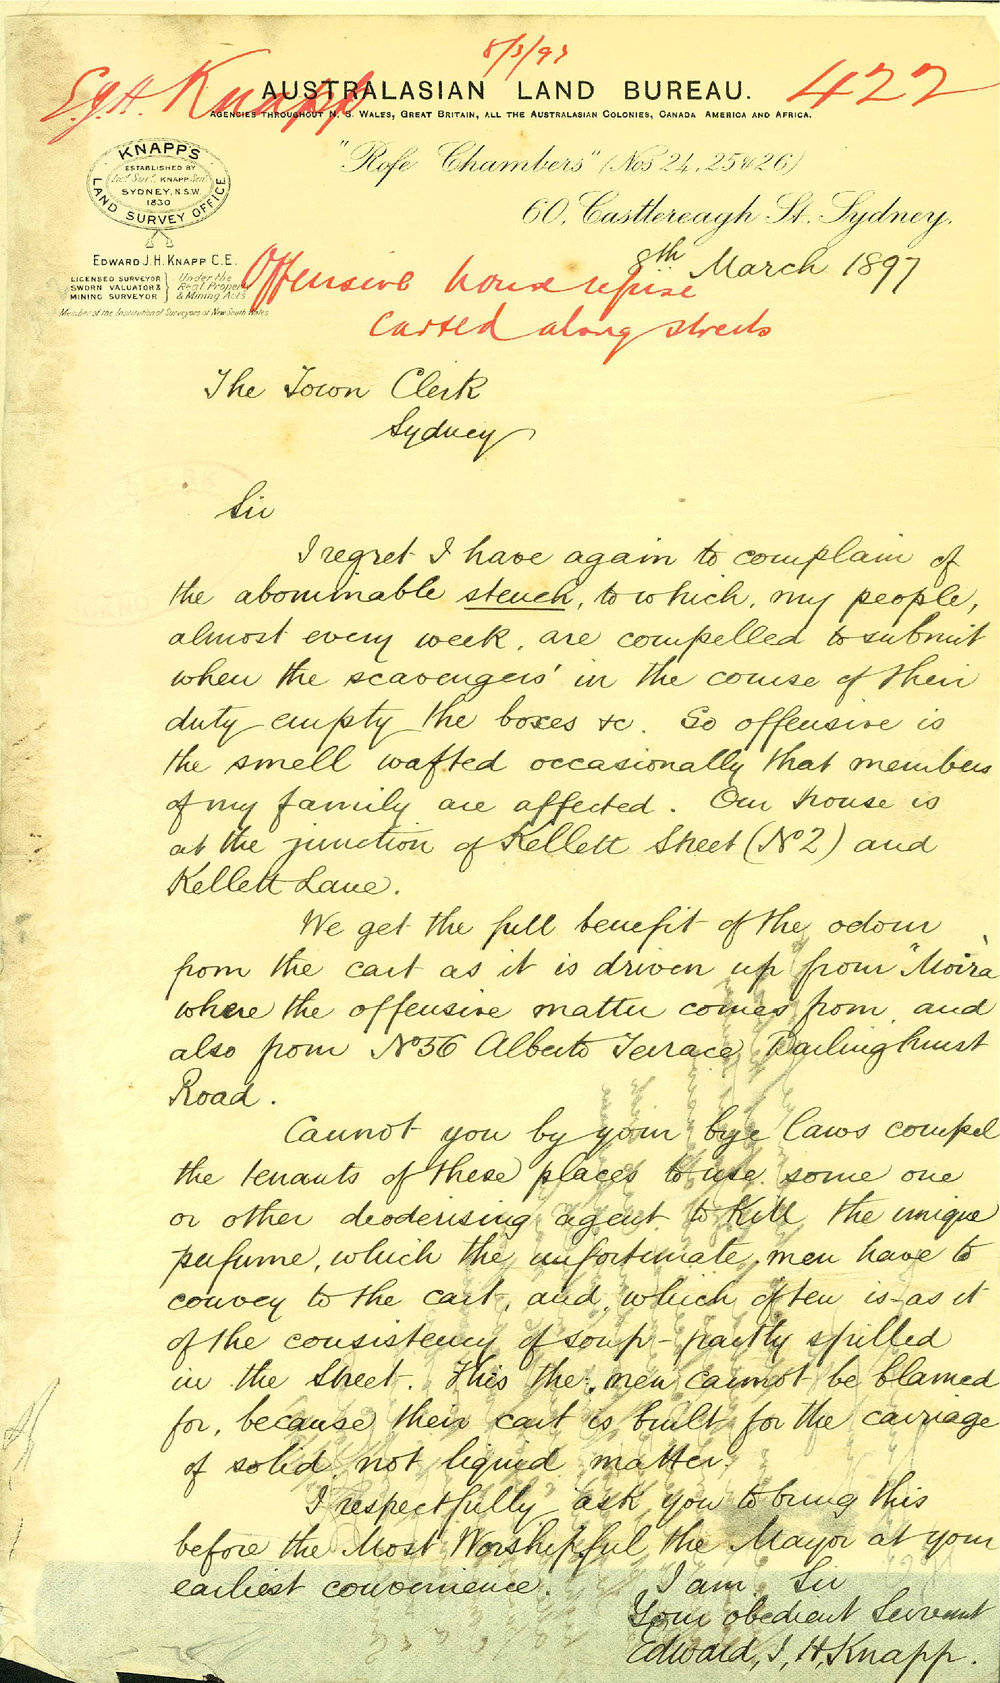 8/3/97
E.J.H. Knapp
422
AUSTRALASIAN LAND BUREAU.
AGENCIES THROUGHOUT N. S. WALES, GREAT BRITAIN, ALL THE AUSTRALASIAN COLONIES, CANADA AMERICA AND AFRICA.
"Rofe Chambers" (Nos 24, 25 & 26)
60, Castlereagh St. Sydney.
KNAPPS
ESTABLISHED BY
KNAPP Senr
SYDNEY, N.S.W.
1830
LAND SURVEY OFFICE
EDWARD J. H. KNAPP C.E.
LICENSED SURVEYOR
SWORN VALUATOR &
MINING SURVEYOR
Under the
Real Property
& Mining Acts
Member of the Institution of Surveyors of New South Wales
8th March 1897
Offensive house refuse
carted along streets
The Town Clerk
Sydney
Sir
I regret I have again to complain of
the abominable stench, to which, my people,
almost every week, are compelled to submit
when the scavengers' in the course of their
duty empty the boxes &c. So offensive is
the smell wafted occasionally that members
of my family are affected. Our house is
at the junction of Kellett Street (No 2) and
Kellett Lane.
We get the full benefit of the odour
from the cart as it is driven up from "Moira"
where the offensive matter comes from, and
also from No 36 Alberto Terrace Darlinghurst
Road.
Cannot you by your bye laws compel
the tenants of these places to use some one
or other deoderising agent to kill the unique
perfume, which the unfortunate men have to
convey to the cart, and, which often is - as it
of the consistency of soup - partly spilled
in the street. This the men cannot be blamed
for, because their cart is built for the carriage
of solid not liquid matter.
I respectfully ask you to bring this
before the Most Worshipful the Mayor at your
earliest convenience.
I am Sir
Your obedient Servant
Edward, J, H, Knapp.